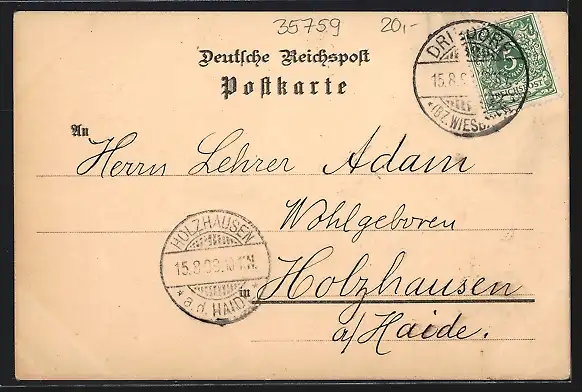 35759 20,-
Deutsche Reichspost
Postkarte
DRIEDORF
15.8.9
*(BZ. WIESB.
5
REICHSPOST
An
Herrn Lehrer Adam
Wohlgeboren
in Holzhausen
a/Haide.
HOLZHAUSEN
15.8.99.
* a.d. HAIDE *